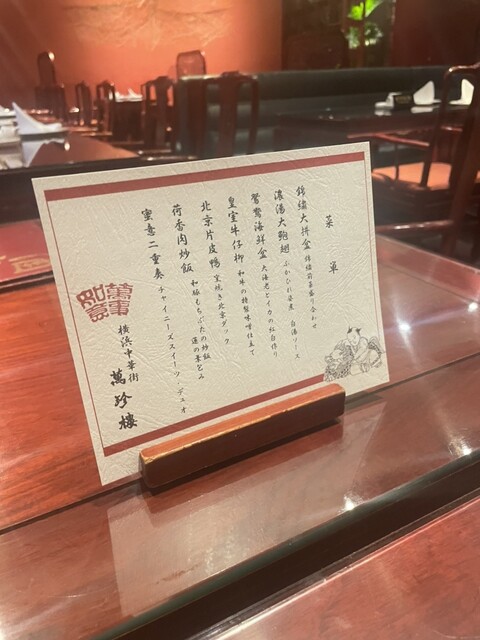 菜單
錦繡大拼盆 錦繡前菜盛り合わせ
濃湯大鮑翅 ふかひれ姿煮 白湯ソース
鴛鴦海鮮盒 大海老とイカの紅白作り
皇室牛仔柳 和牛の特製味噌仕立て
北京片皮鴨 窯焼き北京ダック
荷香肉炒飯 和豚もちぶたの炒飯 蓮の葉包み
蜜意二重奏 チャイニーズスイーツ・デュオ
萬事如意
横浜中華街
萬珍樓